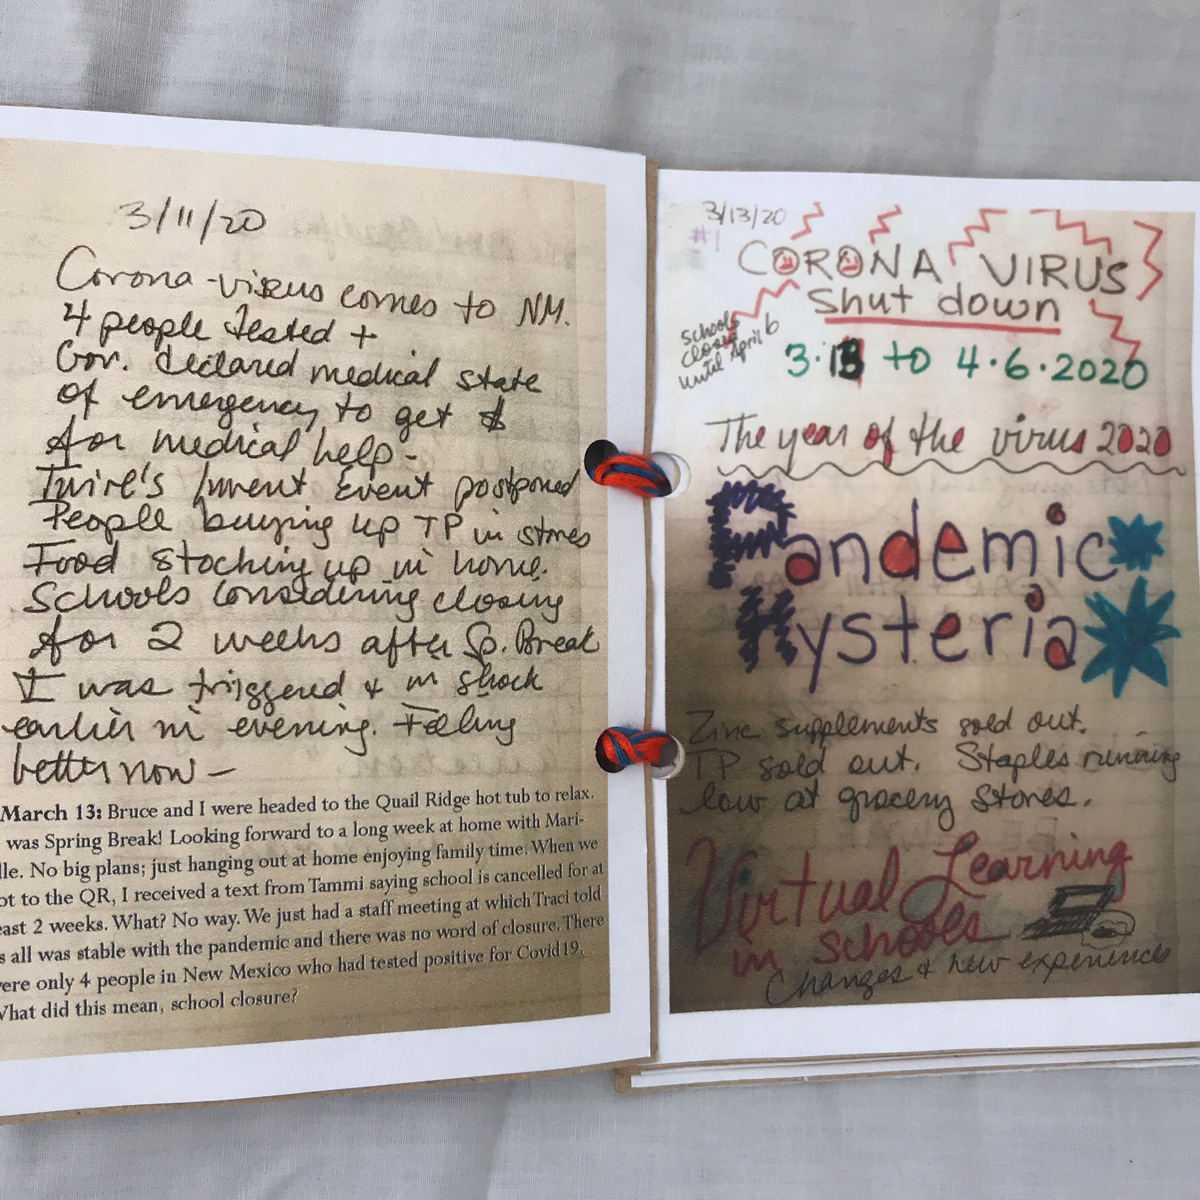 3/11/20
Corona-virus comes to NM.
4 people tested +
Gov. declared medical state
of emergency to get $
for medical help-
Event postponed
People buying up TP in stores
Food stocking up in home.
Schools considering closing
for 2 weeks after Sp. Break
I was triggered & in shock
earlier in evening. Feeling
better now—
March 13: Bruce and I were headed to the Quail Ridge hot tub to relax.
was Spring Break! Looking forward to a long week at home with Mari-
lle. No big plans; just hanging out at home enjoying family time. When we
ot to the QR, I received a text from Tammi saying school is cancelled for at
east 2 weeks. What? No way. We just had a staff meeting at which Traci told
s all was stable with the pandemic and there was no word of closure. There
ere only 4 people in New Mexico who had tested positive for Covid19.
What did this mean, school closure?
3/13/20
#1
CORONA VIRUS
Shut down
schools
closed
until April 6
3.13 to 4.6.2020
The year of the virus 2020
Pandemic
Hysteria
Zinc supplements sold out.
TP sold out. Staples running
low at grocery stores.
Virtual Learning
in schools
Changes & new experiences